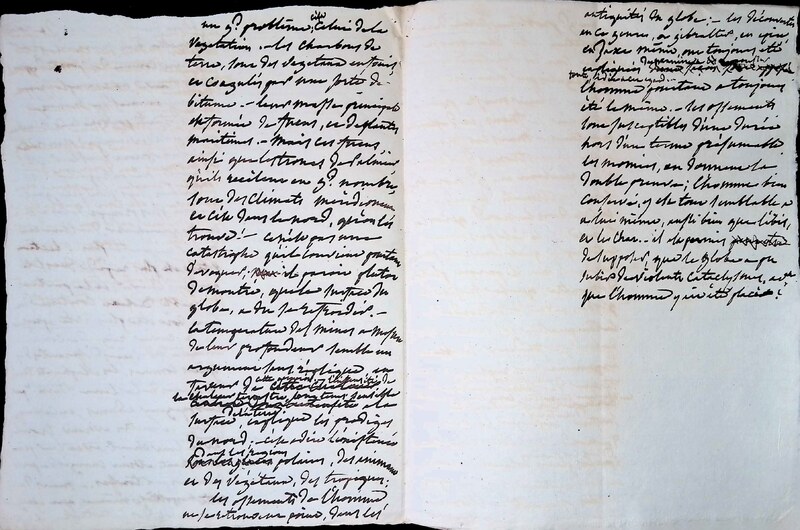 un gd. problème, celui de la
végétation. - les charbons de
terre, sont des végétaux enfouis
et coagulés par une sorte de
bitume. - leur masse principale
est formée de fucus, et de plantes
maritimes. - mais ces fucus,
ainsi que les troncs de Palmier
qu'ils recèlent en gd. nombre,
sont des climats méridionaux
et c'est dans le nord, qu'on les
trouve! - est-ce pas une
catastrophe qu'il convient
d'avouer; il paroit plutôt
démontré, que la surface du
globe, a du se refroidir. -
la température des mines a mesure
de leur profondeur semble un
argument sans réplique, en
faveur de cette
la chaleur terrestre, longtems sensible
a la
surface, explique les prodiges
du nord. - c'est a dire l'existence
dans les régions
polaires, des animaux
et des végétaux, des tropiques;
les ossements de l'homme
ne se trouvent point, dans les
antiquités du globe: - les découvertes
en ce genre, a gibraltar, en
en Saxe même, ont toujours été
l'homme pourtant a toujours
été le même. - les ossements
sont susceptibles d'une durée
hors d'un terme présumable
les momies, en donnent la
double preuve; l'homme bien
conservé, y est tout semblable
a lui même, aussi bien que l'ibis,
et les chats. - il est permis
de supposer, que le globe a pu
subir de violents cataclysmes, avant
que l'homme y ait été placé!